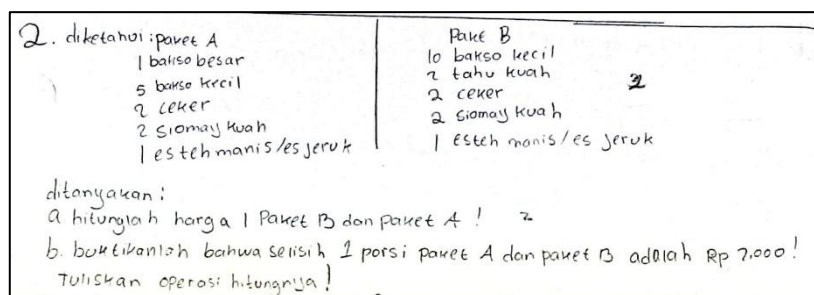 2. diketahui : paket A
1 bakso besar
5 bakso kecil
2 ceker
2 siomay kuah
1 es teh manis/es jeruk
Pake B
10 bakso kecil
2 tahu kuah
2 ceker
2 siomay kuah
1 es teh manis/es jeruk
2
ditanyakan :
a hitunglah harga 1 Paket B dan paket A ! 2
b. buktikanlah bahwa selisih 1 porsi paket A dan paket B adalah Rp 7.000 !
Tuliskan operasi hitungnya !